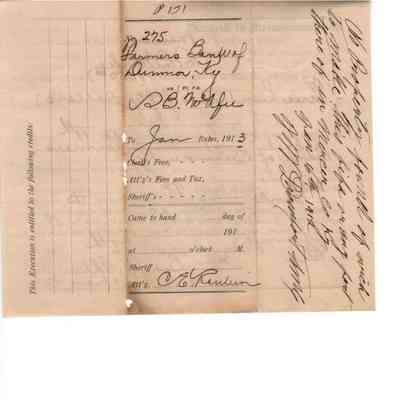 P 151
No 275
Farmers Bank of
Dunmor, Ky
vs
S B. McAfee
To Jan Rules, 1913
Clerk's Fees,
Att'y's Fees and Tax,
Sheriff's
Came to hand day of
191
at o'clock M.
Sheriff
Att'y.
This Execution is entitled to the following credits:
No Property found of said
to make this or any part
there of in Co Ky
Jan 6th